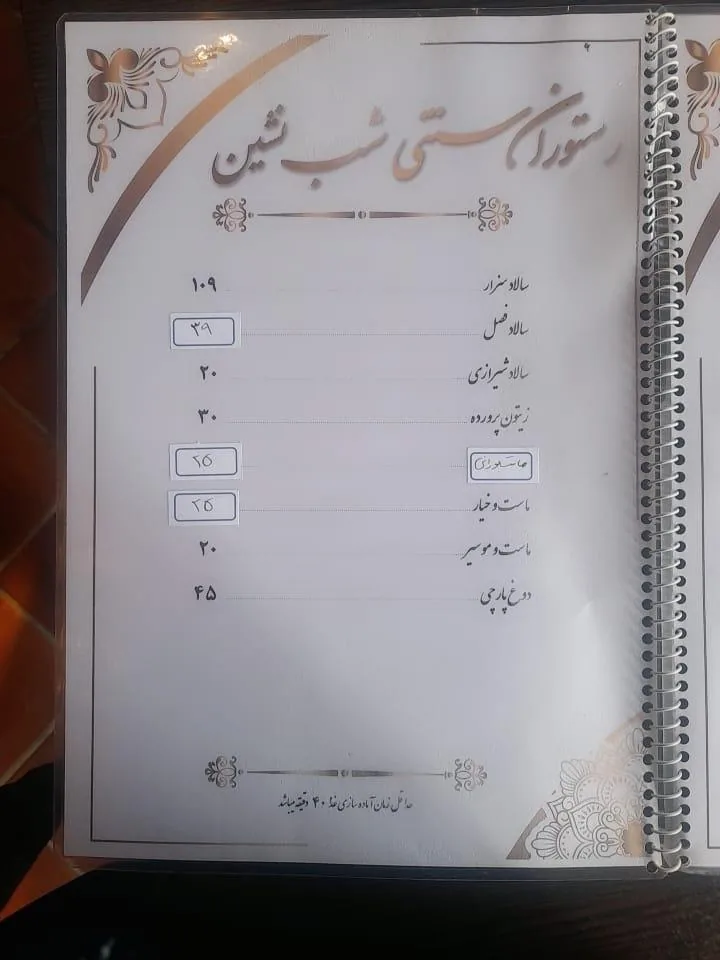 رستوران سنتی شب نشین
سالاد سزار ۱۰۹
سالاد فصل ۳۹
سالاد شیرازی ۲۰
زیتون پرورده ۳۰
۲۵
ماست و خیار ۲۵
ماست و موسیر ۲۰
دوغ پارچی ۴۵
حداقل زمان آماده سازی غذا ۴۰ دقیقه میباشد